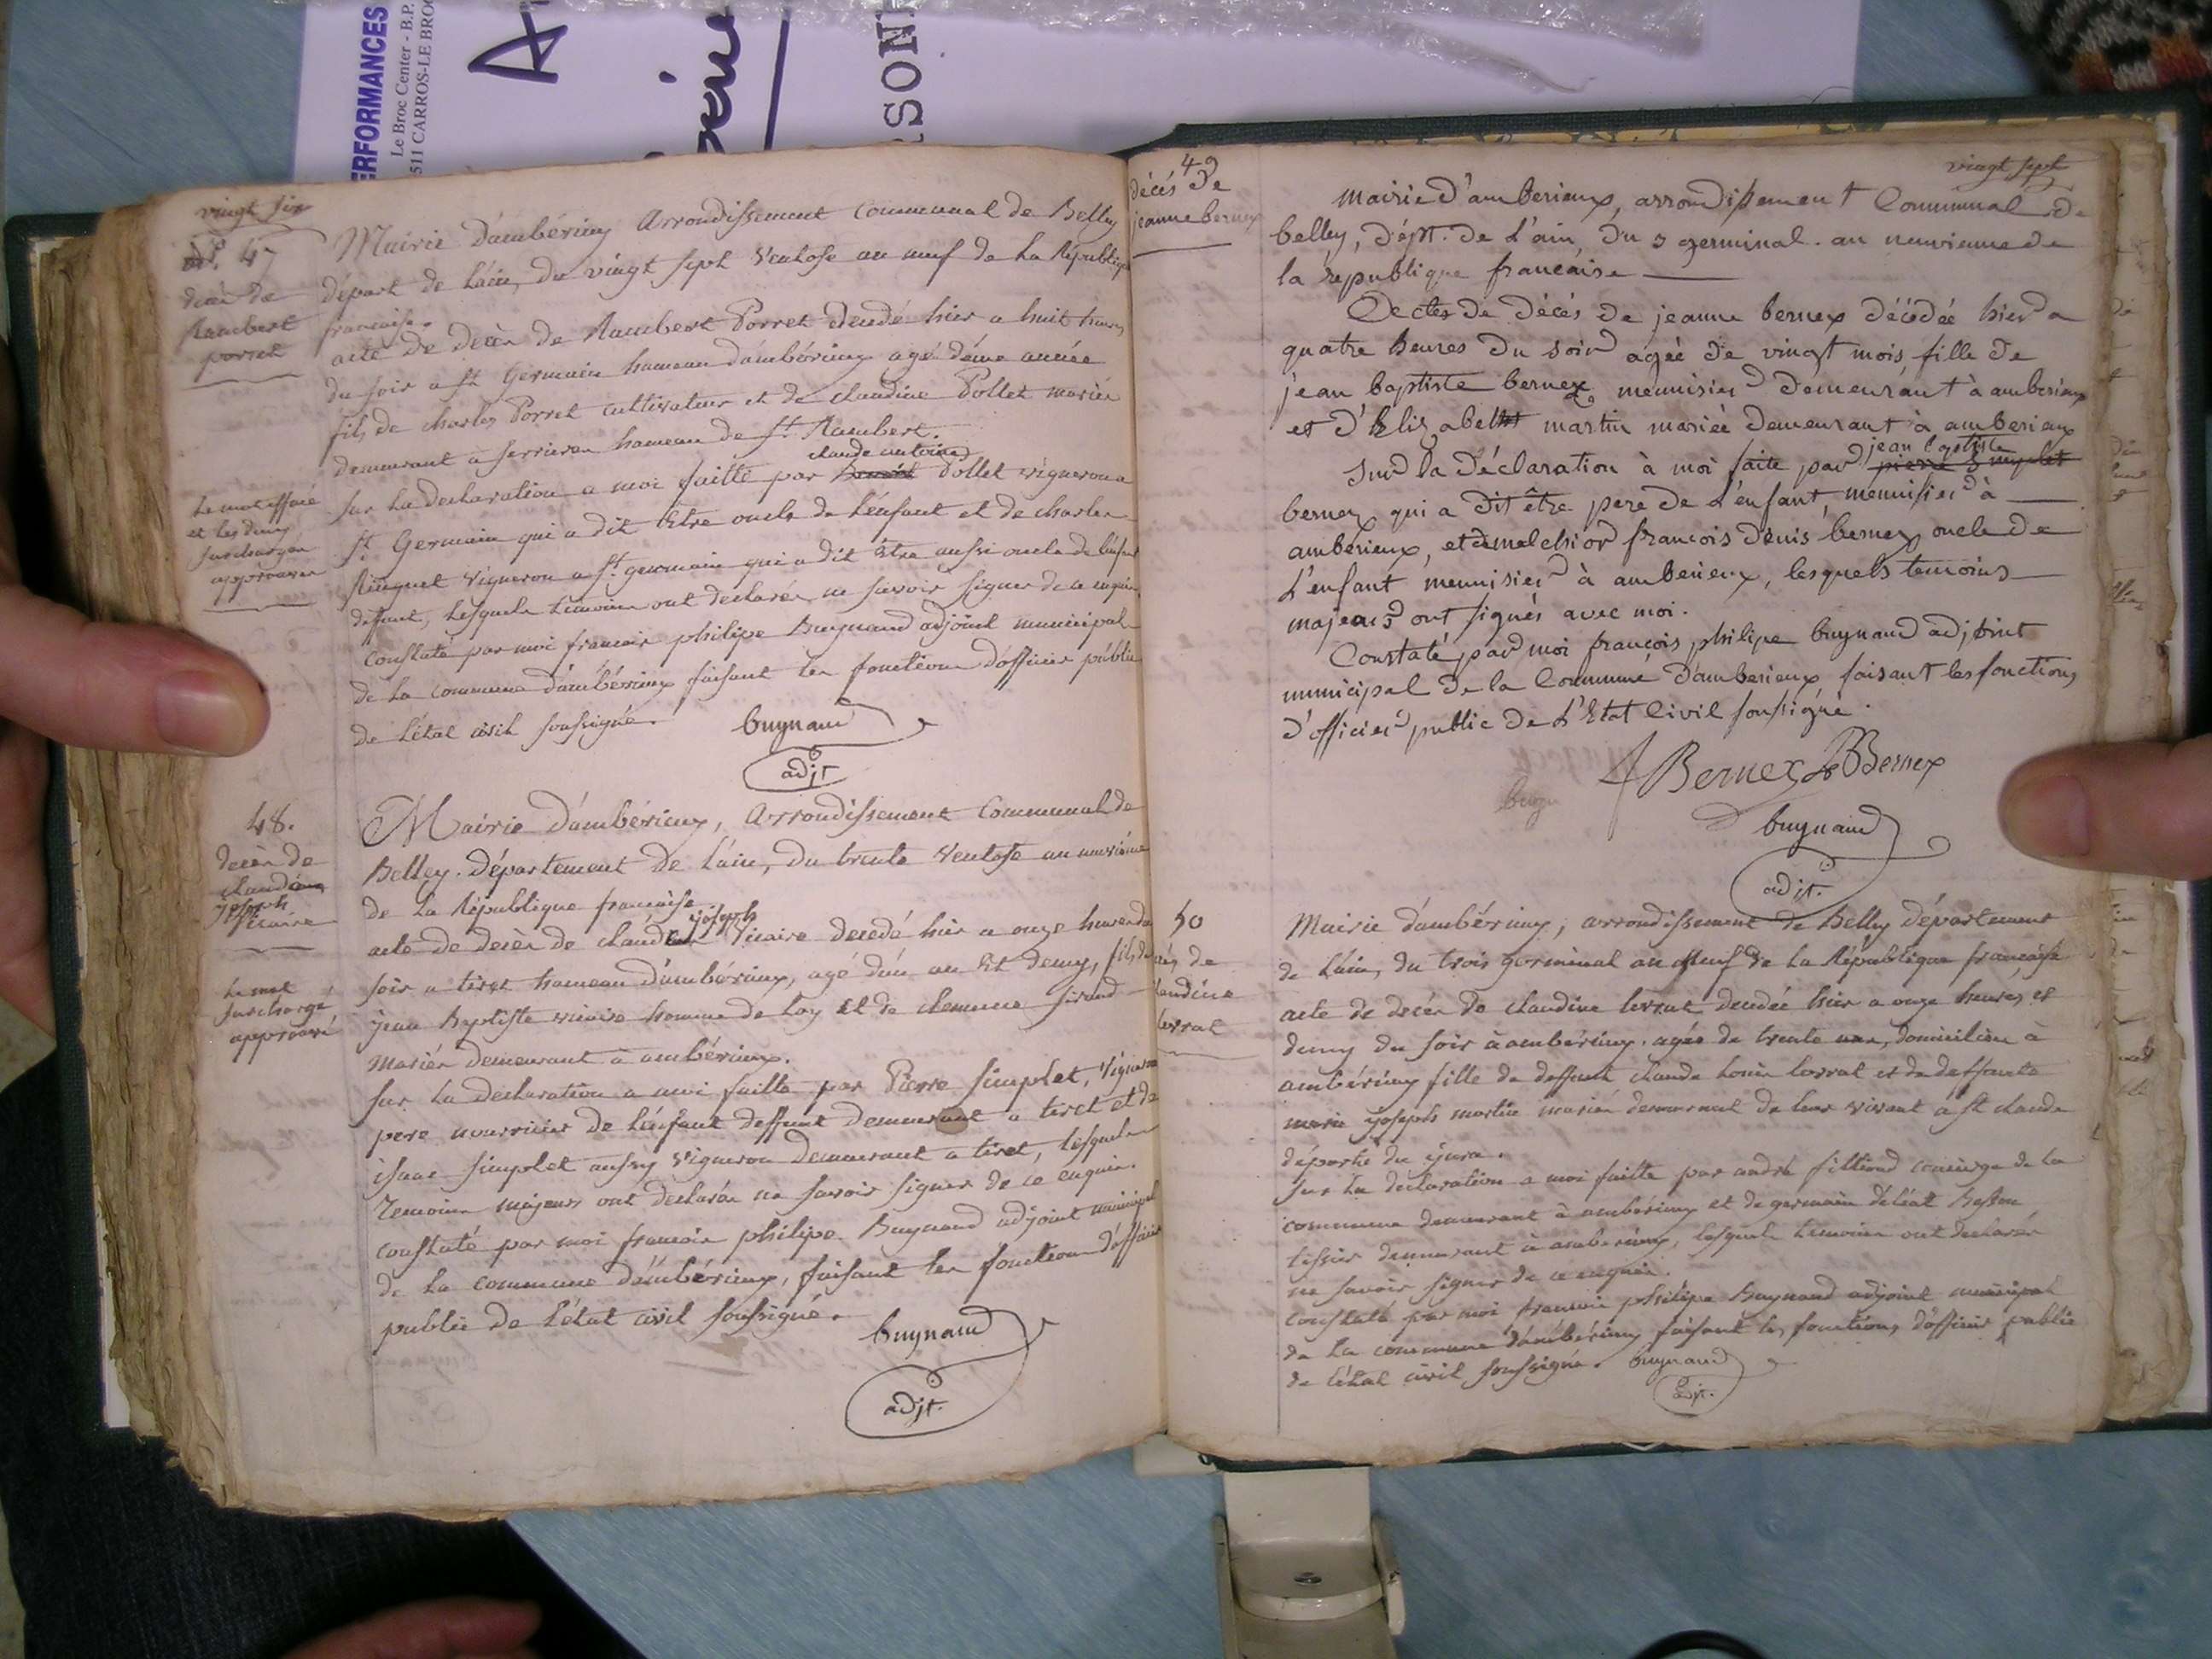 ERFORMANCES
Le Broc Center - B.P.
511 CARROS-LE BROC
vingt six
47
decès de
Rambert
porret
Mairie d'ambérieux arrondissement Communal de Belley
départ de L'ain, du vingt sept Ventose an neuf de La République
francaise.
acte de decès de Rambert Porret decedé hier a huit heures
du soir a St Germain hameau d'ambérieux agé d'une année
fils de charles Porret cultivateur et de claudine Pollet mariés
demeurant a serrieres hameau de St Rambert.
claude antoine
Sur La declaration a moi faitte par Benoit Pollet vigneron a
St Germain qui a dit Etre oncle de L'enfant et de charles
Ringuet Vigneron a St germain qui a dit être aussi oncle de L'enfant
deffunt, Lesquels temoins ont declarés ne savoir signer de ce enquis
Constaté par moi francois philipe Buynand adjoint municipal
de La commune d'ambérieux faisant les fonctions d'officier public
de L'état civil soussigné.
buynand
adjt
Le mot effacé
et les deux
surchargés
approuvés
48.
decès de
claude
joseph
Vicaire
Le mot
surchargé
approuvé
Mairie d'ambérieux, arrondissement Communal de
Belley. Département de L'ain, du trente Ventose an neuvième
de La République française
joseph
acte de decès de claude Vicaire decedé hier a onze heures du
soir a tiret hameau d'ambérieux, agé d'un an Et demy, fils de
jean Baptiste vicaire homme de Loy et de clemence sirand
Mariés demeurant à ambérieux.
Sur La declaration a moi faitte par Pierre Simplet, Vigneron
pere nourricier de L'enfant deffunt demeurant a tiret et de
isaac Simplet aussy Vigneron demeurant a tiret, Lesquels
Temoins majeurs ont declarés ne savoir signer de ce enquis.
constaté par moi francois philipe Buynand adjoint municipal
de La commune d'ambérieux, faisant les fonctions d'officier
public de L'état civil soussigné.
buynand
adjt.
vingt sept
49
décès de
jeanne bernex
mairie d'amberieux, arrondissement Communal de
belley, dépt. de L'ain, du 3 germinal. an neuvieme de
la république francaise
Acte de décès de jeanne bernex décédée hier a
quatre heures du soir agée de vingt mois, fille de
jean baptiste bernex menuisier demeurant à amberieux
et d'Elizabeth martin mariés demeurant à amberieux
jean baptiste
Sur la déclaration à moi faite par pierre Simplet
bernex qui a dit être pere de L'enfant, menuisier à
amberieux, et de melchior francois denis bernex oncle de
L'enfant menuisier à amberieux, lesquels temoins
majeurs ont signés avec moi.
Constaté par moi françois philipe buynand adjoint
municipal de la Commune d'amberieux faisant les fonctions
d'officier public de L'Etat Civil soussigné.
Bernex JBBernex
buyn
buynand
adjt.
50
décès de
claudine
lorrat
Mairie d'ambérieux, arrondissement de Belley département
de L'ain, du trois germinal an neuf de La République francaise
acte de decès de claudine lorrat decedée hier a onze heures et
demy du soir à ambérieux. agée de trente ans, domiciliée à
ambérieux fille de deffunt claude Louis lorrat et de deffunte
marie josephe martin mariés demeurant de leur vivant à st claude
départ du jura.
Sur La declaration a moi faitte par andré filliond concierge de la
commune demeurant à ambérieux et de germain déléat Besson
tissier demeurant à ambérieux, lesquels temoins ont declarés
ne savoir signer de ce enquis.
constaté par moi francois philipe Buynand adjoint municipal
de La commune d'ambérieux faisant les fonctions d'officier public
de L'état civil soussigné. buynand
adjt.